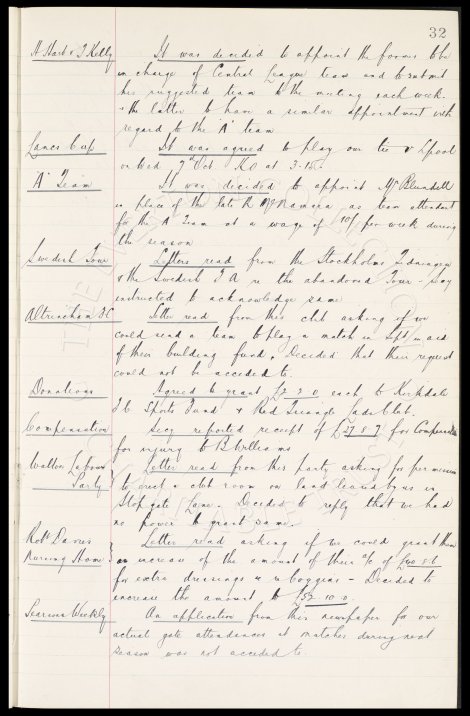 32
H. Hart & J. Kelly It was decided to appoint the former to be
in charge of Central League team and to submit
his suggested team to the meeting each week.
& the latter to have a similar appointment with
regard to the "A" team
Lancs Cup It was agreed to play our tie v L'pool
on Wed. 7th Oct. K.O at 3-15.
"A" Team It was decided to appoint Mr Blundell
in place of the late Mr McNamara as team attendant
for the A Team at a wage of 10/- per week during
the season
Swedish Tour Letters read from the Stockholms Tidningen
& the Swedish F A re the abandoned Tour - Secy
instructed to acknowledge same
Altrincham F.C Letter read from this club asking if we
could send a team to play a match in Sept in aid
of their building fund. Decided that their request
could not be acceded to.
Donations Agreed to grant £2.2.0 each to Kirkdale
Sports Fund & Red Triangle Lads Club.
Compensation Secy reported receipt of £27.8.7 for Compensation
for injury to B Williams
Walton Labour Letter read from this party asking for permission
Party to erect a club room on land leased by us in
Stopgate Lane. Decided to reply that we had
no power to grant same.
Robt Davies Letter read asking if we could grant them
Nursing Home an increase of the amount of their a/c of £40.8.6
for extra dressings re Coggins - Decided to
increase the amount to £52.10.0.
Weekly An application from this newspaper for our
actual gate attendances at matches during next
season was not acceded to.